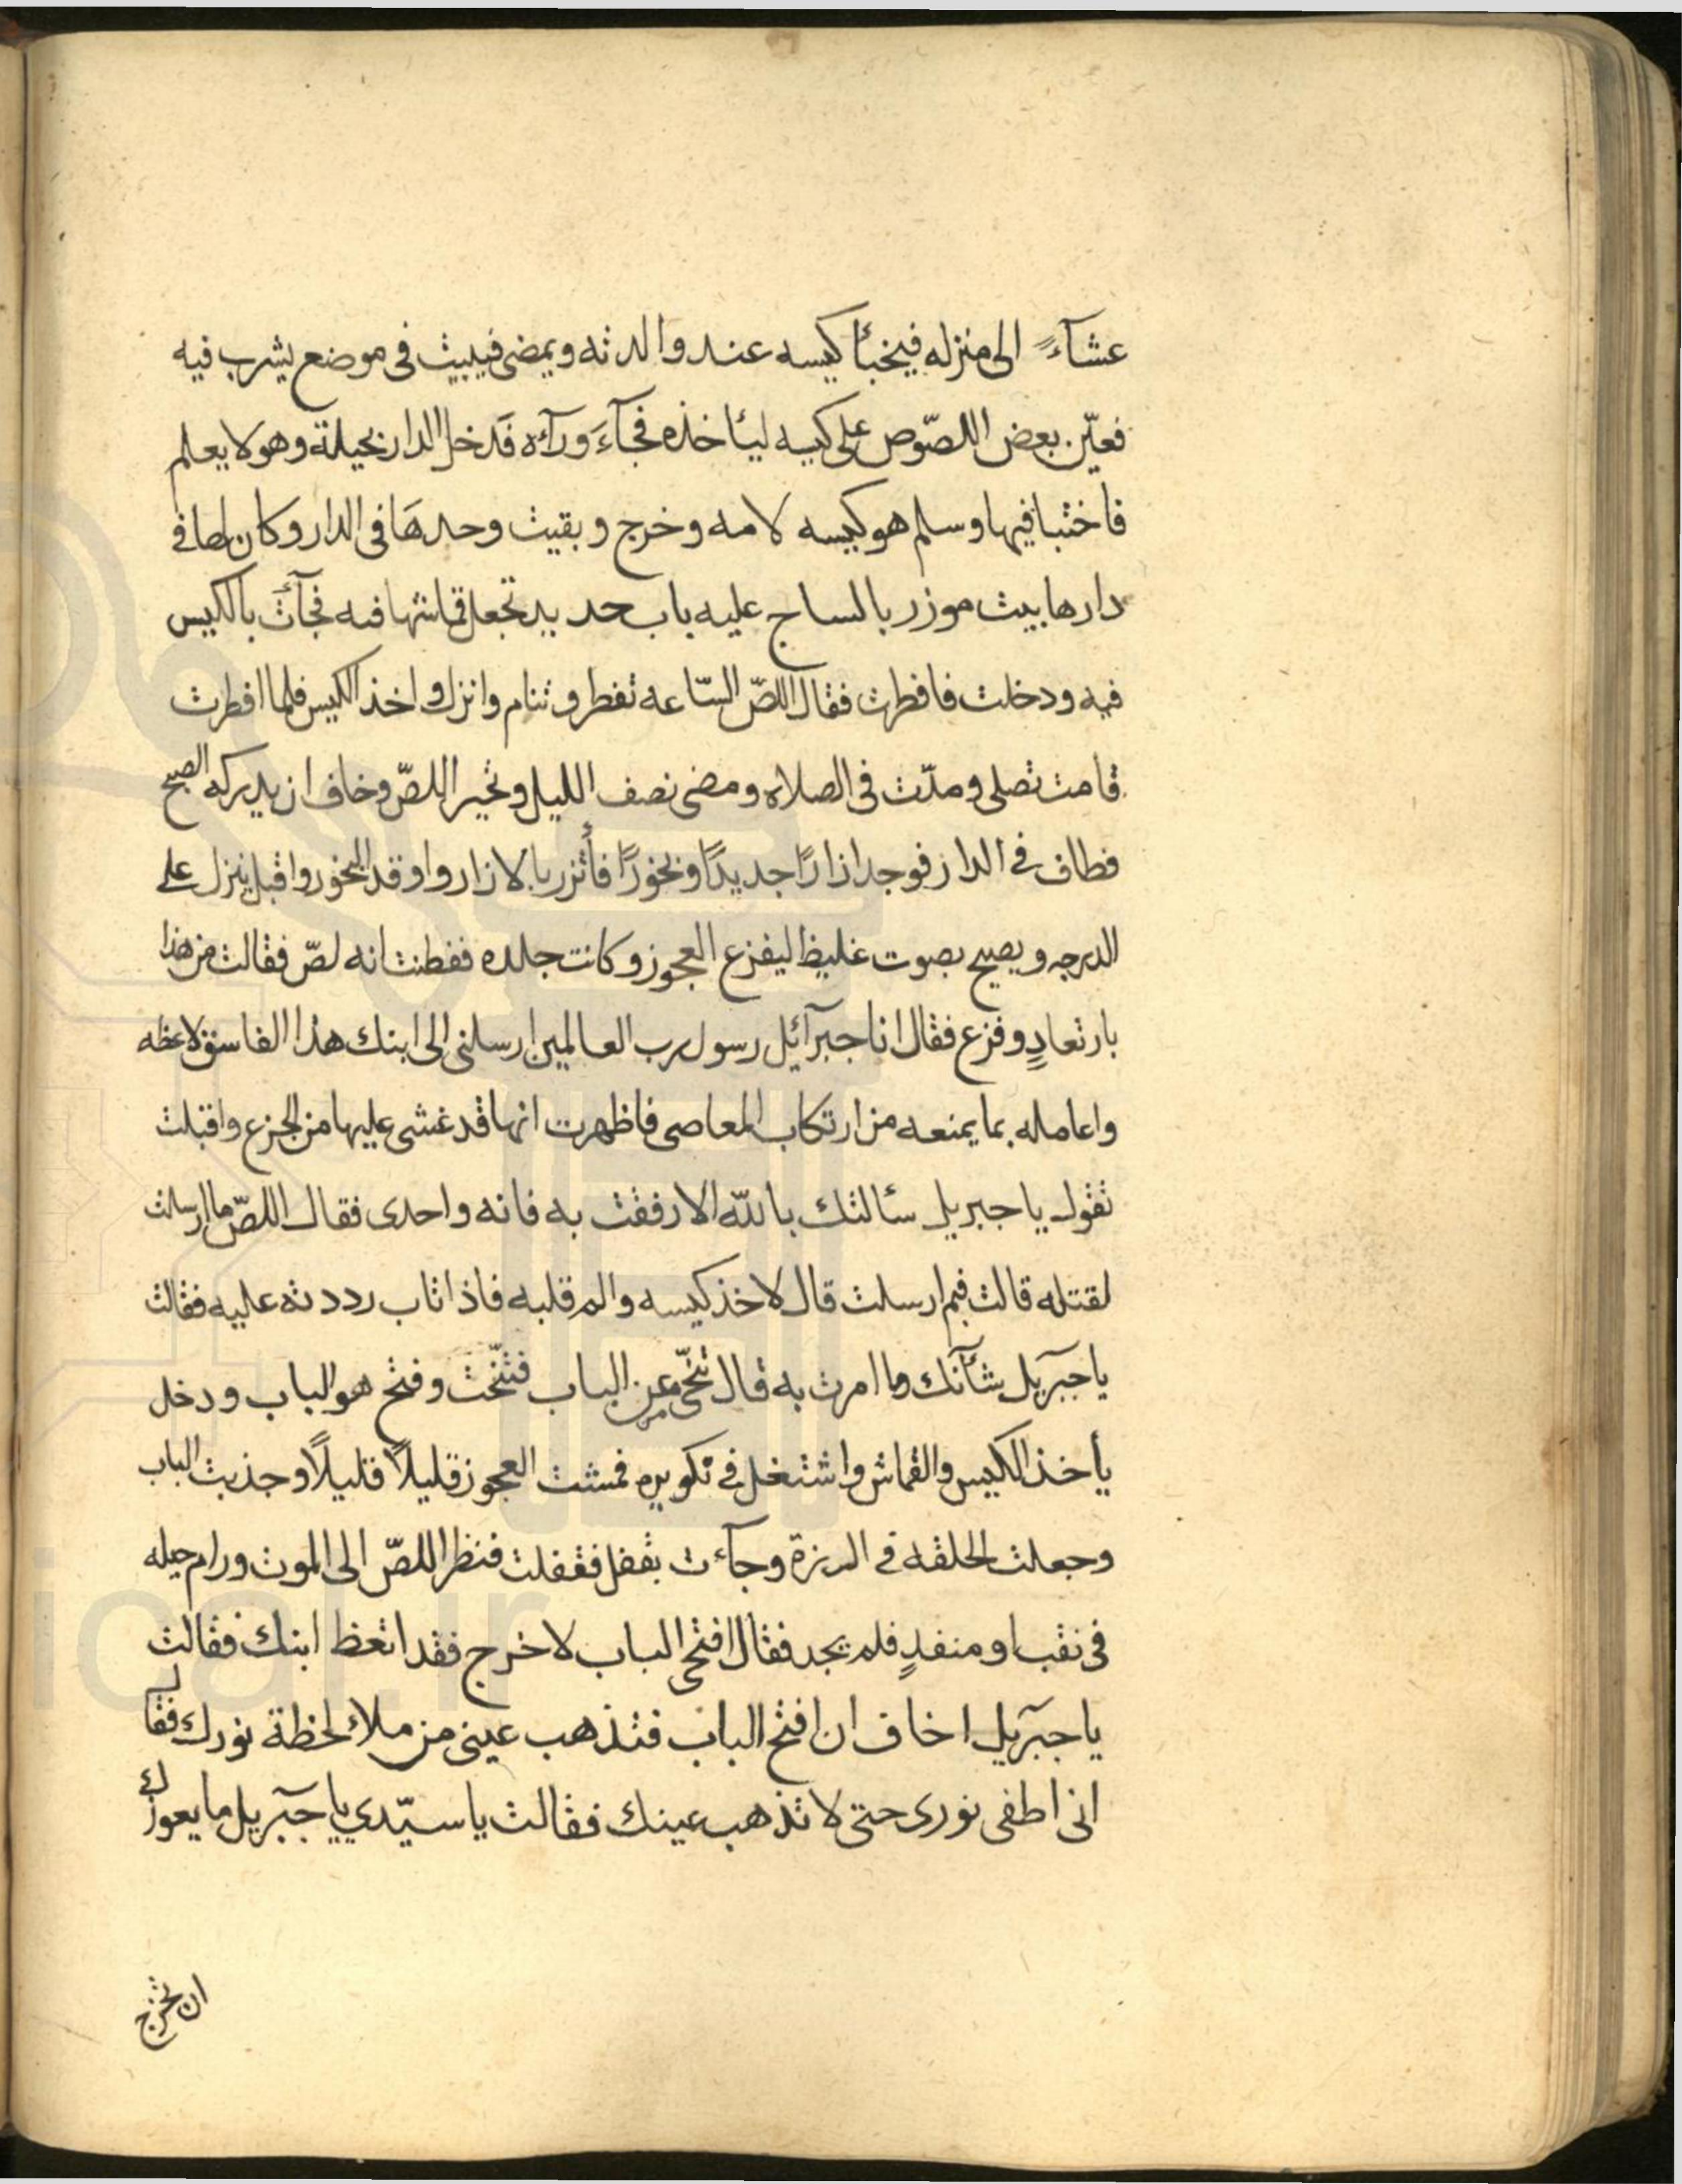 عشآءً الى منزله فيخبأ كيسه عند والدته ويمضى فيبيت فى موضع يشرب فيه
فعيّن بعض اللصّوص على كيسه ليأخذه فجآءَ ورآءه فَدخل الدار بحيلة وهو لا يعلم
فاختبا فيها وسلم هو كيسه لامه وخرج وبقيت وحدهَا فى الدار وكان لها فى
دارها بيت موزر بالساج عليه باب حديد تجعل قماشها فيه فجآءت بالكيس
فيه ودخلت فافطرت فقال اللصّ السّاعه تفطر وتنام وانزل واخذ الكيس فلما افطرت
قامت تصلى ومدّت فى الصلاه ومضى نصف الليل وتحير اللصّ وخاف ان يدركه الصبح
فطاف فى الدار فوجد ازارًا جديدًا وبخورًا فأتزر بالازار واوقد البخور واقبل ينزل على
الدرجه ويصيح بصوت غليظ ليفزع العجوز وكانت جلده ففطنت انه لصّ فقالت من هذا
بارتعادٍ وفزع فقال انا جبرآئيل رسول رب العالمين ارسلنى الى ابنك هذا الفاسق لاعظه
واعامله بما يمنعه من ارتكاب المعاصى فاظهرت انها قد غشى عليها من الجزع واقبلت
تقول يا جبريل سئالتك بالله الا رفقت به فانه واحدى فقال اللصّ ما ارسلت
لقتله قالت فبم ارسلت قال لاخذ كيسه والم قلبه فاذا تاب رددته عليه فقالت
يا جبرَيل شأنك وما امرت به قال تنحّى عن الباب فتنّحت وفتح هو الباب ودخل
يأخذ الكيس والقماش واشتغل فى تكويره فمشت العجوز قليلاً قليلاً وجذبت الباب
وجعلت الحلقه فى الرزة وجآءت بقفل فقفلت فنظر اللصّ الى الموت ورام حيله
فى نقب او منفذٍ فلم يجد فقال افتحى الباب لاخرج فقد اتعظ ابنك فقالت
يا جبرَيل اخاف ان افتح الباب فتذهب عينى من ملاءحظة نورك فقال
انى اطفى نورى حتى لا تذهب عينك فقالت يا سيّدي يا جبرَيل ما يعوزك
ان تخرج